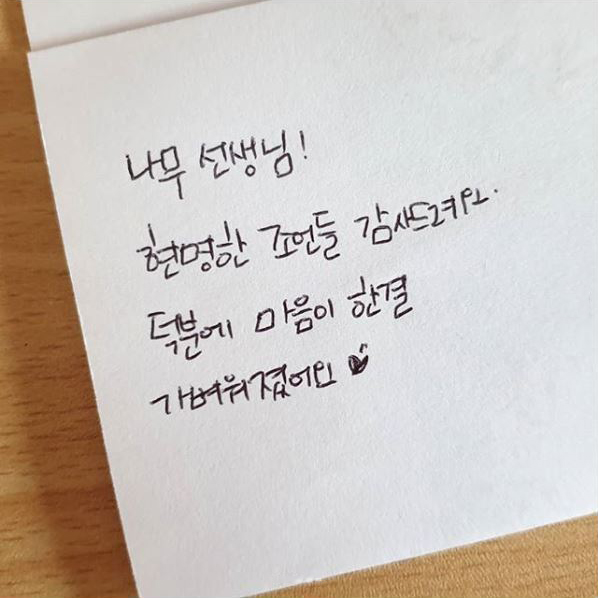 나무 선생님!
현명한 조언들 감사드려요.
덕분에 마음이 한결
가벼워졌어요